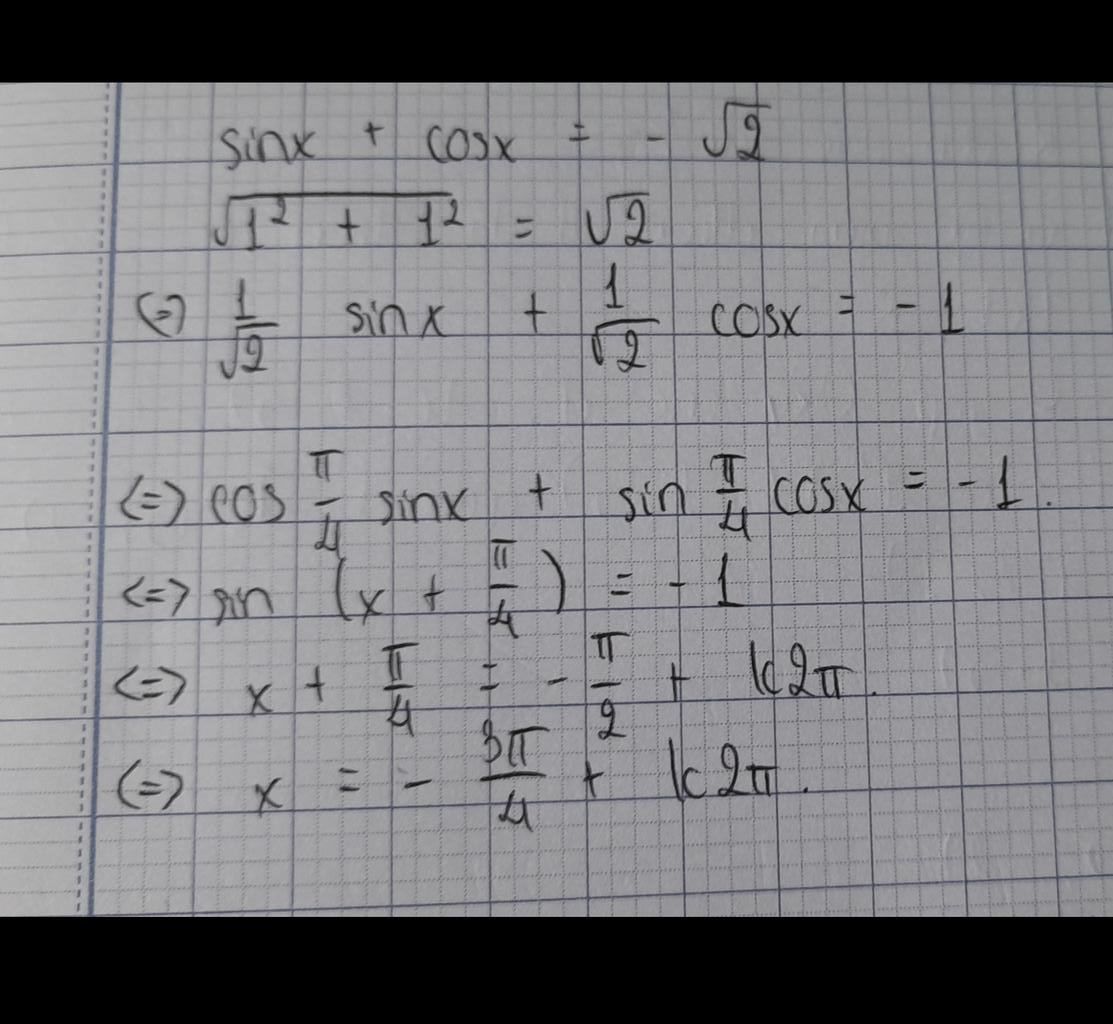 sinx + cosx = - √2
√(1² + 1²) = √2
(=) 1/√2 sinx + 1/√2 cosx = - 1
(=) cos π/4 sinx + sin π/4 cosx = - 1.
(=) sin (x + π/4) = - 1
(=) x + π/4 = - π/2 + k2π.
(=) x = - 3π/4 + k2π.